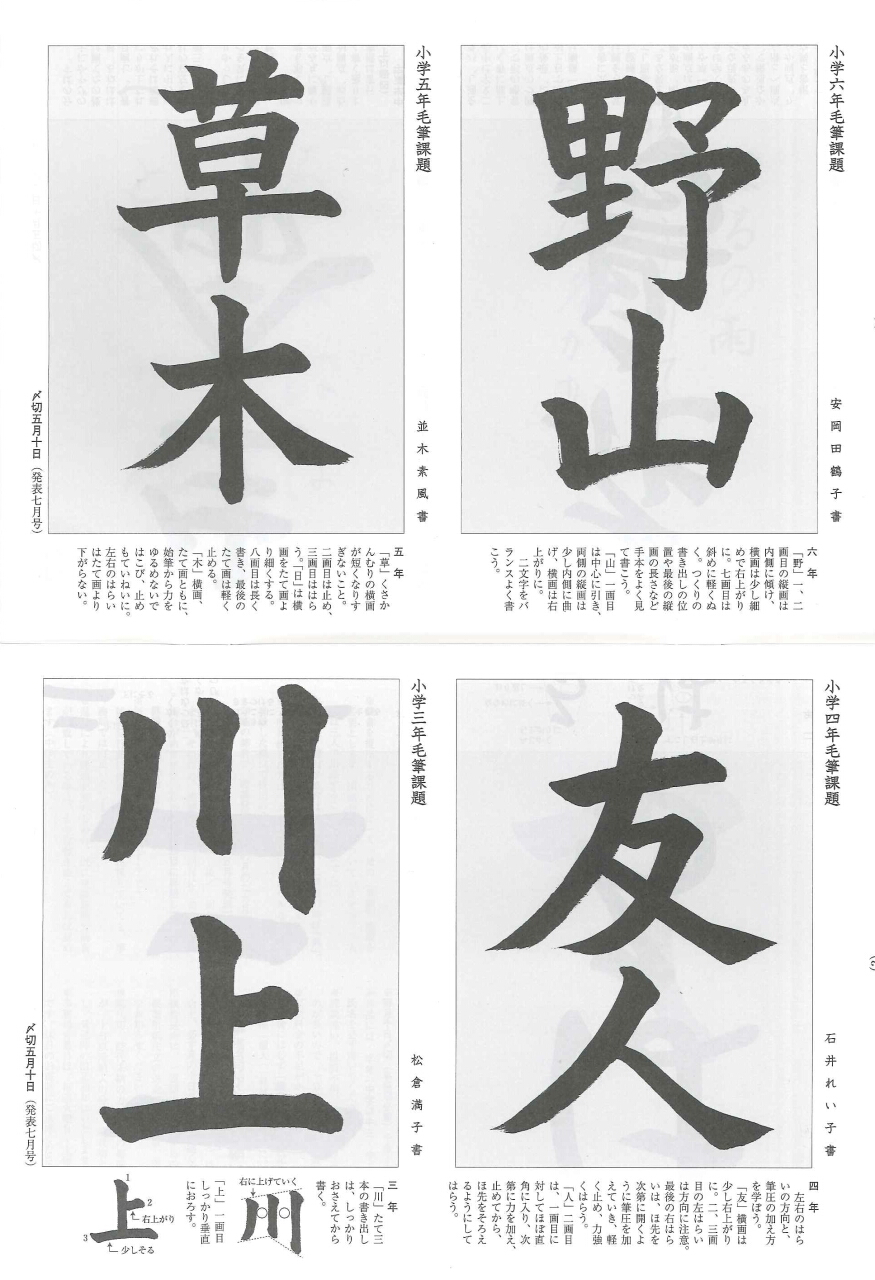 小学六年毛筆課題
野山
安岡田鶴子書
六年
「野」一、二
画目の縦画は
内側に傾け、
横画は少し細
めで右上がり
に。七画目は
斜めに軽くぬ
く。つくりの
書き出しの位
置や最後の縦
画の長さなど
手本をよく見
て書こう。
「山」一画目
は中心に引き、
両側の縦画は
少し内側に曲
げ、横画は右
上がりに。
二文字をバ
ランスよく書
こう。
小学五年毛筆課題
草木
並木素風書
五年
「草」くさか
んむりの横画
が短くなりす
ぎないこと。
二画目は止め、
三画目ははら
う。「日」は横
画をたて画よ
り細くする。
八画目は長く
書き、最後の
たて画は軽く
止める。
「木」横画、
たて画ともに、
始筆から力を
ゆるめないで
はこび、止め
もていねいに。
左右のはらい
はたて画より
下がらない。
〆切五月十日（発表七月号）
小学四年毛筆課題
友人
石井れい子書
四年
左右のはら
いの方向と、
筆圧の加え方
を学ぼう。
「友」横画は
少し右上がり
に。二、三画
目の左はらい
は方向に注意。
最後の右はら
いは、ほ先を
次第に開くよ
うに筆圧を加
えていき、軽
く止め、力強
くはらう。
「人」二画目
は、一画目に
対してほぼ直
角に入り、次
第に力を加え、
止めてから、
ほ先をそろえ
るようにして
はらう。
小学三年毛筆課題
川上
松倉満子書
三年
「川」たて三
本の書き出し
は、しっかり
おさえてから
書く。
右に上げていく
川
「上」一画目
しっかり垂直
におろす。
上
1
2
右上がり
3
少しそる
〆切五月十日（発表七月号）